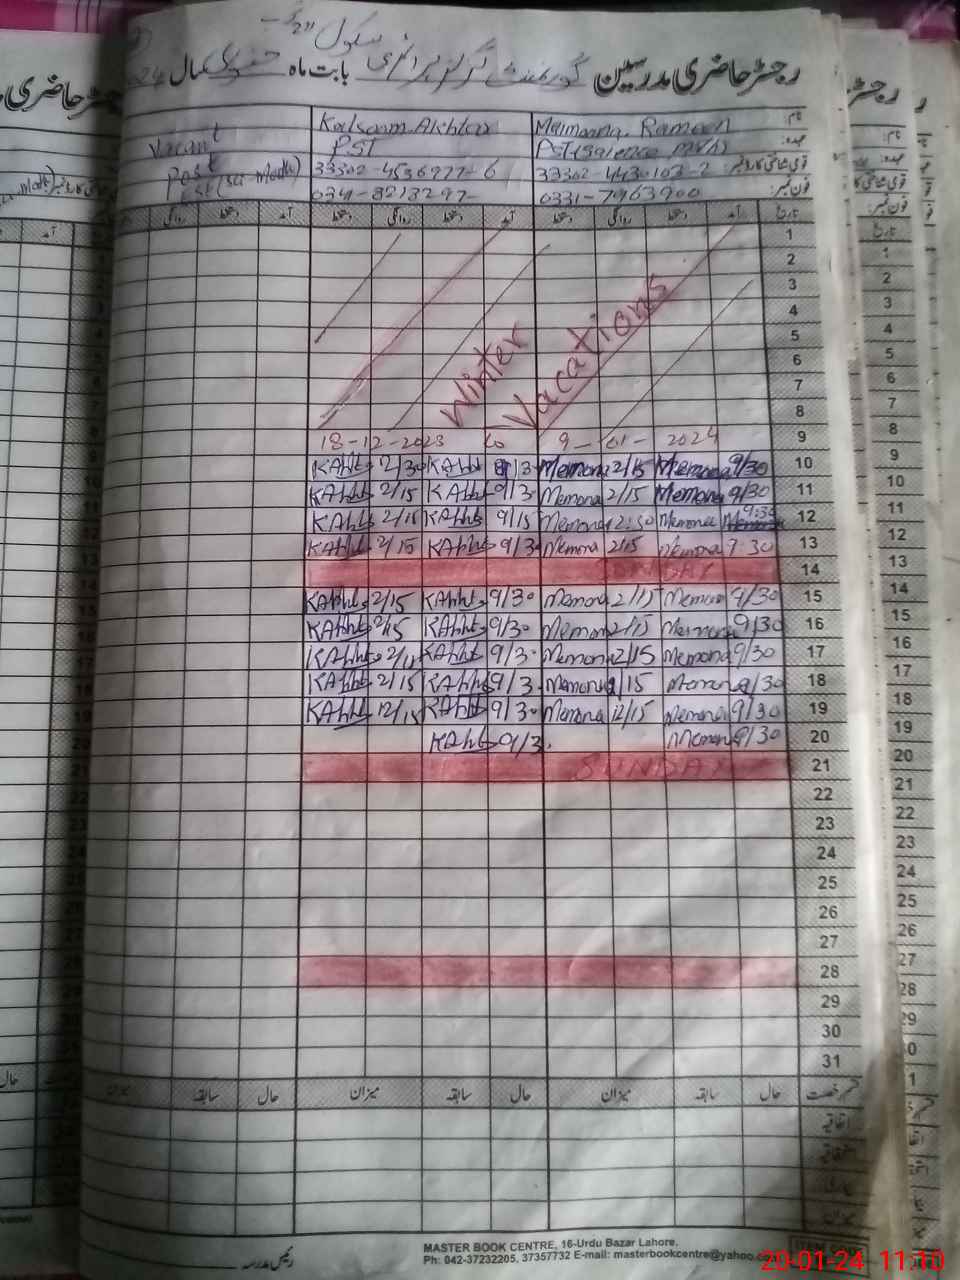 رجسٹر حاضری مدرسین گورنمنٹ گرلز پرائمری سکول بابت ماہ جنوری سال 24
نام: Maimoona Rameen Kalsoom Akhtar Vacant
عہدہ: PST(Science Math) PST Post
قومی شناختی کارڈ نمبر: 33302-4430103-2 33302-4536977-6 PST(Sci-Math)
فون نمبر: 0331-7963900 0341-8213297
تاریخ آمد دستخط روانگی دستخط آمد دستخط روانگی دستخط آمد دستخط روانگی
1
2
3
4
5
6
7
8
Winter
Vacations
18-12-2023 to 9-01-2024 9
KAhht 2/30 KAhht 9/30 Memona 2/15 Memona 9/30 10
KAhht 2/15 KAhht 9/30 Memona 2/15 Memona 9/30 11
KAhht 2/15 KAhht 9/15 Memona 2:30 Memona 9:30 12
KAhht 2/15 KAhht 9/3 Memona 2/15 Memona 9:30 13
SUNDAY 14
KAhht 2/15 KAhht 9/30 Memona 2/15 Memona 9/30 15
KAhht 2/15 KAhht 9/30 Memona 2/15 Memona 9/30 16
KAhht 2/15 KAhht 9/3 Memona 2/15 Memona 9/30 17
KAhht 2/15 KAhht 9/3 Memona 2/15 Memona 9/30 18
KAhht 12/15 KAhht 9/30 Memona 12/15 Memona 9/30 19
KAhht 9/3 Memona 9/30 20
SUNDAY 21
22
23
24
25
26
27
28
29
30
31
قسم رخصت حال سابقہ میزان حال سابقہ میزان حال سابقہ میزان
اتفاقیہ
استحقاقیہ
رئیس مدرسہ
MASTER BOOK CENTRE, 16-Urdu Bazar Lahore.
Ph: 042-37232205, 37357732 E-mail: masterbookcentre@yahoo.co
20-01-24 11:10